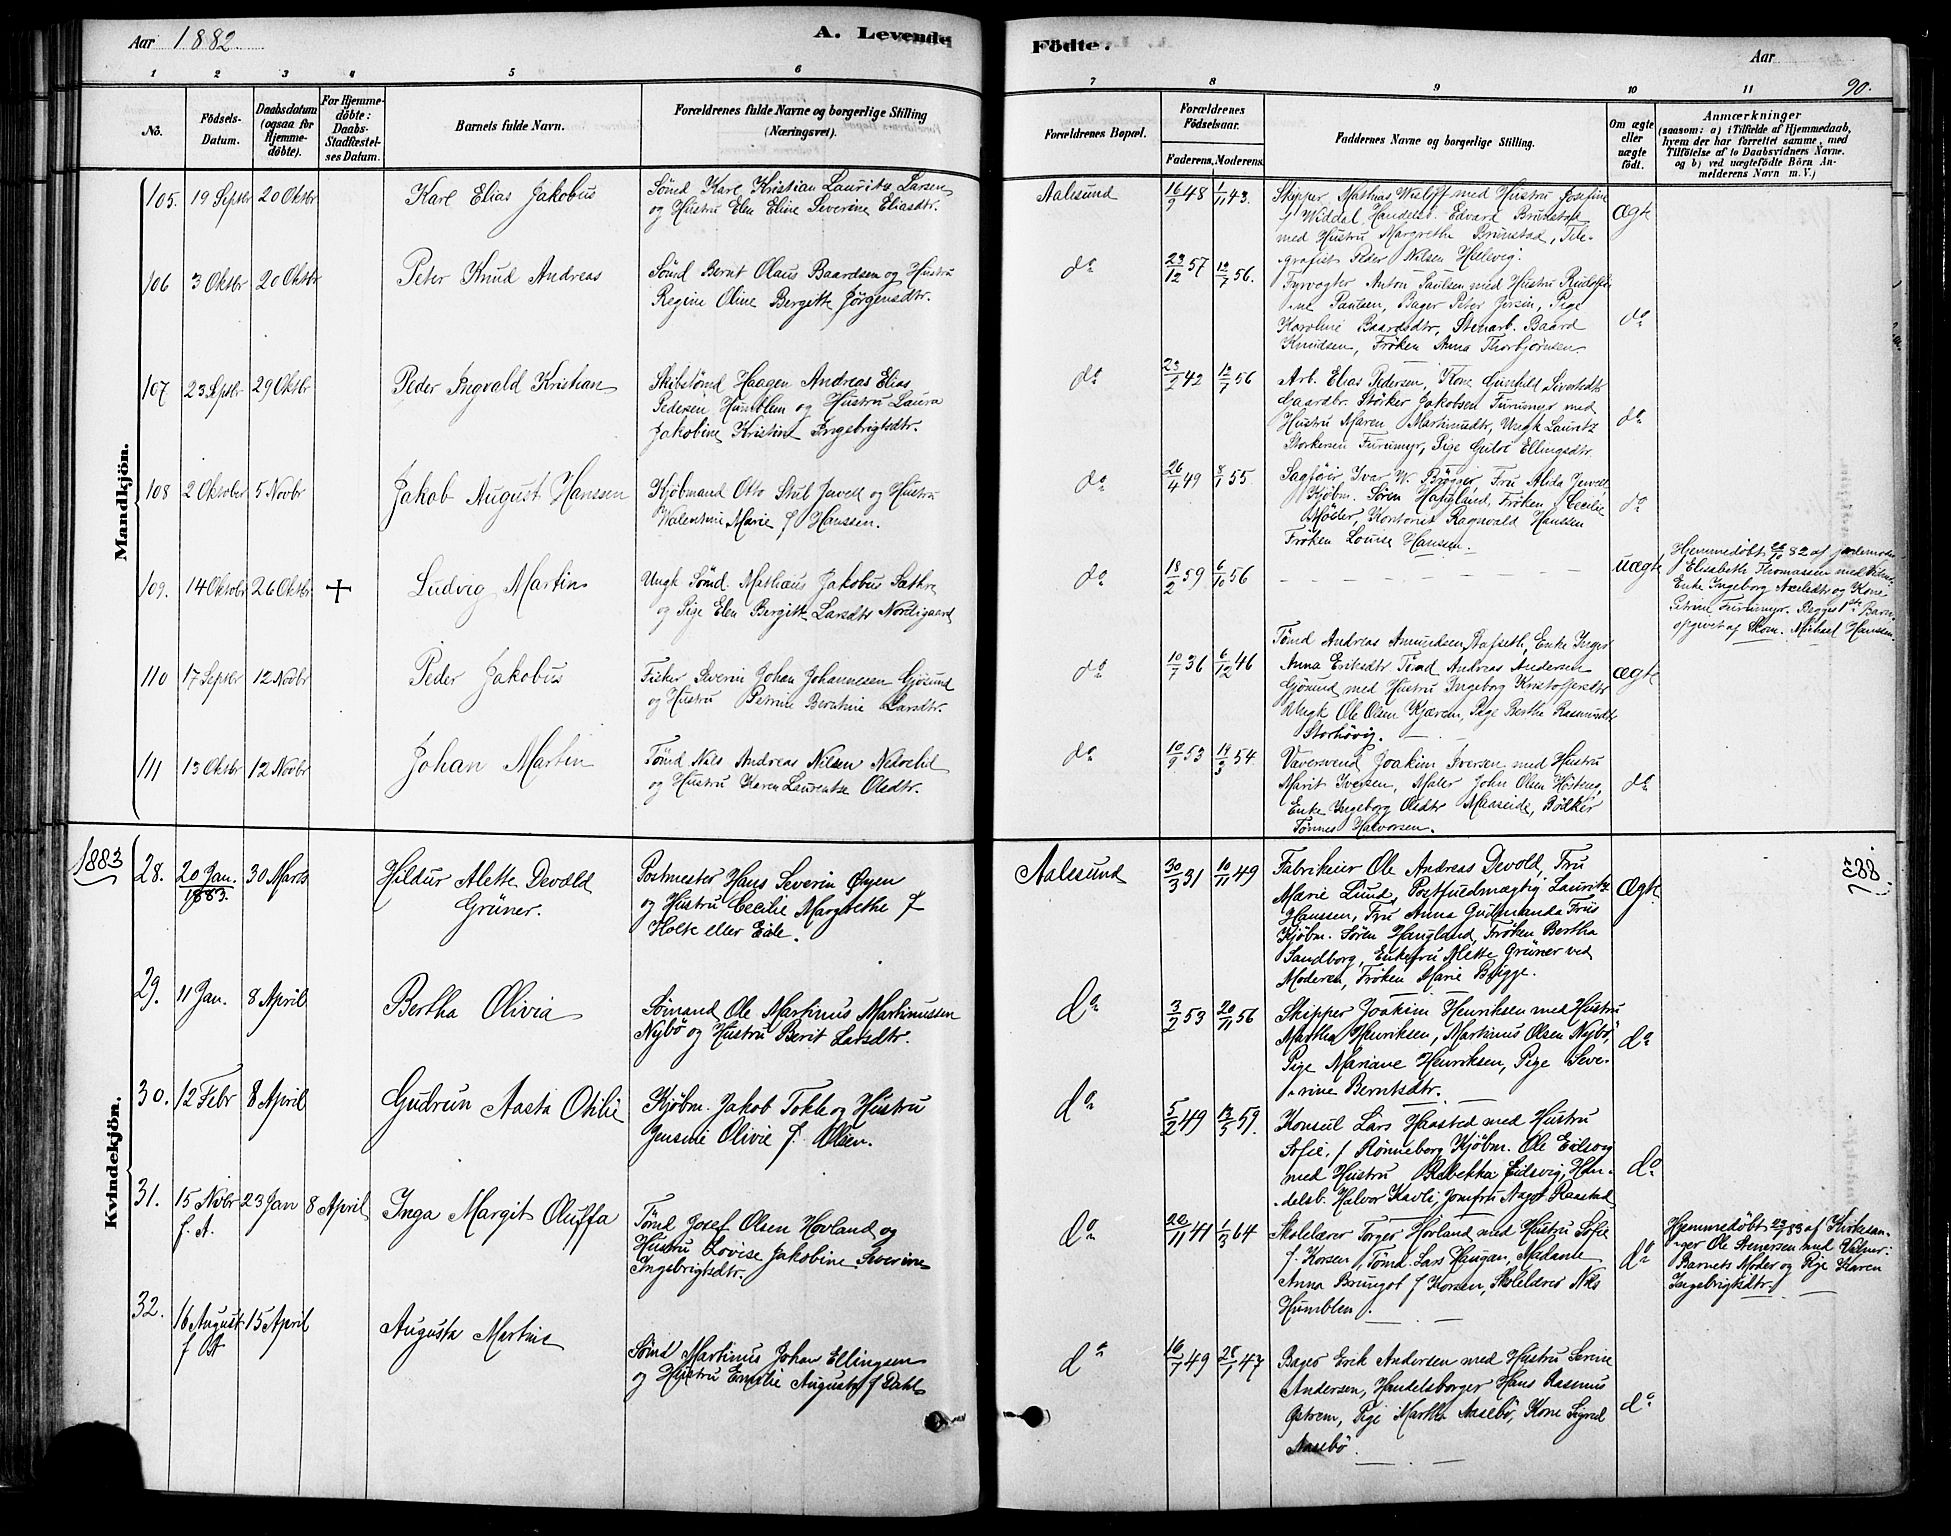 Aar 1882.
A. Levende
Födte.
Aar
90.
1 2 3 4 5 6 7 8 9 10 11
No.
Födsels-
Datum.
Daabsdatum
(ogsaa for
Hjemme-
döbte).
For Hjemme-
döbte:
Daabs-
Stadfæstel-
ses Datum.
Barnets fulde Navn.
Forældrenes fulde Navne og borgerlige Stilling
(Næringsvei).
Forældrenes Bopæl.
Forældrenes
Födselsaar.
Faderens. Moderens.
Faddernes Navne og borgerlige Stilling.
Om ægte
eller
uægte
födt.
Anmærkninger
(saasom: a) i Tilfælde af Hjemmedaab,
hvem der har forrettet samme, med
Tilföielse af to Daabsvidners Navne.
og b) ved uægtefödte Börn An-
melderens Navn m. V.)
Mandkjön.
105. 19 Septbr 20 Oktbr
Karl Elias Jakobus
Sømd Karl Kristian Lauritz Larsen
og Hustru Elen Eline Severine Eliasdtr.
Aalesund
16/9 48 1/11 43.
Skipper Mathias Wulff med Hustru Josefine
f Widdal Handelsb. Edvard Brunstad
med Hustru Margrethe Brunstad, Tele-
grafist Peder Nilsen Hellevig.
Ægte
106 3 Oktbr 20 Oktbr
Peter Knud Andreas
Sømd Bernt Olaus Baardsen og Hustru
Regine Oline Bergette Jørgensdtr.
do
23/12 57 12/7 56.
Fyrvogter Anton Paulsen med Hustru Rudolfi-
ne Paulsen, Bager Peter Jensin, Pige
Karoline Baardsdtr, Stenarb. Baard
Knudsen, Frøken Anna Thorbjørnsen.
do
107 23 Septbr 29 Oktbr
Peder Ingvald Kristian
Skibstømd Haagen Andreas Elias
Pedersen Humblem og Hustru Laura
Jakobine Kristine Ingebrigtsdtr.
do
23/2 42 12/1 56
Arb. Elias Pedersen, Kone Gunhild Sivertsdtr
Gaardbr. Størker Jakobsen Furumyr med
Hustru Maren Martinusdtr, Ungk Lauritz
Storkersen Furumyr, Pige Guloe Ellingsdtr.
do
108 2 Oktober 5 Novbr
Jakob August Hanssen
Kjøbmand Otto Stub Jervell og Hustru
Walentine Marie f Hanssen.
do
26/4 49 8/1 55.
Sagfører Ivar W. Brøgger Fru Alida Jervell
Kjøbm. Søren Haugland, Frøken Cecilie
Møller, Kontorist Ragnvald Hanssen
Frøken Louise Hansen.
do
109. 14 Oktobr 26 Oktbr +
Ludvig Martin
Ungk Sømd Mathæus Jakobus Sæthre
og Pige Elen Bergitte Larsdtr Nordigaard
do
18/2 59 6/10 56
uægte
Hjemmedøbt 22/10 82 af Jordemoder
Elisabeth Thomassen med Vidner
Enke Ingeborg Axelsdtr og Kone
Petrine Furumyr. Begges 1ste Barn,
opgivet af Skom. Michael Hansen.
110 17 Septbr 12 Novbr
Peder Jakobus
Fisker Severin Johan Johannesen Gjøsund
og Hustru Petrine Berntine Larsdtr.
do
10/7 36 6/12 46
Tømd Andreas Amundsen Rafseth, Enke Inger
Anna Eriksdtr Tømd Andreas Andersen
Gjøsund med Hustru Ingeborg Kristoffersdtr
Ungk Ole Olsen Kjærem, Pige Berthe Rasmusdtr
Storhøvig.
ægte
111 13 Oktbr 12 Novbr
Johan Martin
Tømd Nils Andreas Nilsen Nedrelid
og Hustru Karen Laurentse Olsdtr.
do
10/9 53 14/3 54
Væversvend Joakim Iversen med Hustru
Marit Iversen, Maler John Olsen Høsteng,
Enke Ingeborg Olsdtr Manseide, Bødker
Tønnes Halvorsen.
do
1883
Kvindekjön.
28. 20 Jan. 1883. 30 Marts
Hildur Alette Devold
Grüner.
Postmester Hans Severin Øyen
og Hustru Cecilie Margrethe f
Holte eller Eide.
Aalesund
30/3 31 10/11 49
Fabrikeier Ole Andreas Devold, Fru
Marie Lund, Postfuldmægtig Lauritz
Hanssen, Fru Anna Gudmanda Friis
Kjøbm. Søren Haugland, Frøken Bertha
Sandborg, Enkefru Alette Grüner ved
Moderen, Frøken Marie Brigge.
Ægte
1883.
29. 11 Jan. 8 April
Bertha Olivia
Sømand Ole Martinus Martinussen
Nybø og Hustru Berit Larsdtr.
do
3/2 53 20/11 56
Skipper Joakim Henriksen med Hustru
Martha Henriksen, Martinus Olsen Nybø,
Pige Mariane Henriksen, Pige Seve-
rine Berntsdtr.
do
30. 12 Febr 8 April
Gudrun Aasta Otilie
Kjøbm. Jakob Tokle og Hustru
Jensine Olivie f. Olsen.
do
5/2 49 13/3 59.
Konsul Lars Haasted med Hustru
Sofie, f Rønneberg Kjøbm. Ole Eidsvig
med Hustru Rebekka Eidsvig, Han-
delsb. Halvor Kavli, Jomfru Aagot Raastad
do
31. 15 Novbr f. A. 23 Jan 8 April
Inga Margit Oluffa
Tømd Josef Olsen Hovland og
Hustru Lovise Jakobine Severine
Ingebrigtsdtr.
do
20/11 41 1/3 64
Skolelærer Torger Hovland med Hustru Sofie
f. Korsen, Tømd. Lars Haugan, Madame
Anna Brungot f Korsen, Skolelærer Nils
Humblen.
do
Hjemmedøbt 23/1 83 af Kirkesan-
ger Ole Stenersen med Vidner:
Barnets Moder og Pige Karen
Ingebrigtsdtr.
32. 16 August f At 15 April
Augusta Martine
Sømd Martinus Johan Ellingsen
og Hustru Emilie Augusta f Dahl
do
16/7 49 28/1 47
Bager Erik Andersen med Hustru Serine
Andersen, Handelsborger Hans Rasmus
Østrem, Pige Martha Aasebø, Kone Sigrid
Aasebø.
do